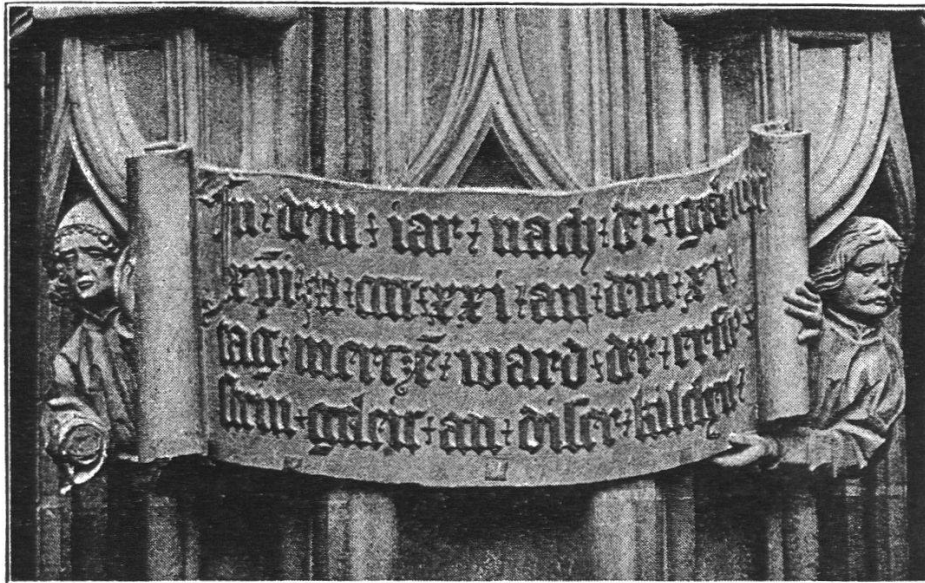 In dem iar nach der geburt
xp̄i m cccc xxi an dem xi
tag merczē ward der erste
stein geleit an diser kilchen